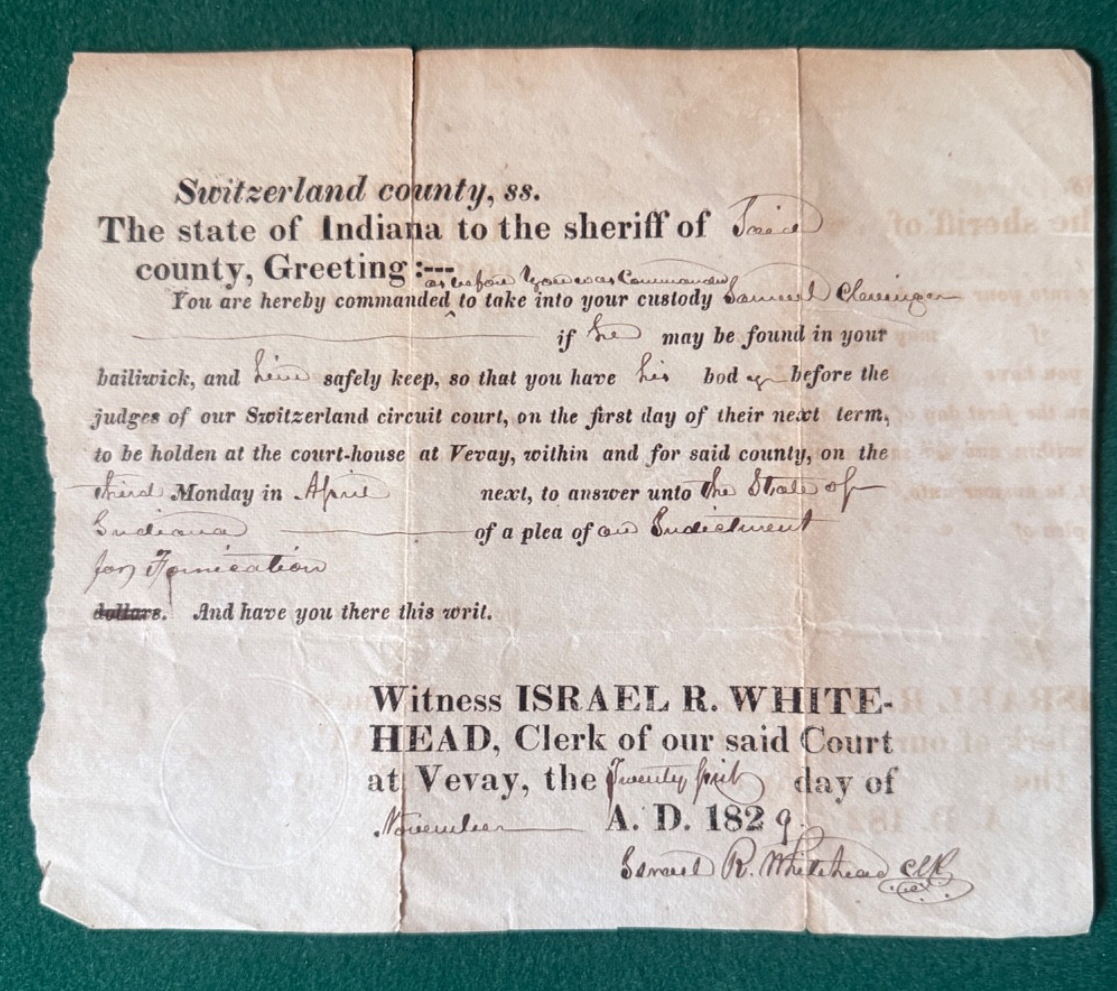 Switzerland county, ss.
The state of Indiana to the sheriff of Said
county, Greeting :---
as before You was Commanded
You are hereby commanded ^ to take into your custody Samuel Clevenger
if he may be found in your
bailiwick, and him safely keep, so that you have his body before the
judges of our Switzerland circuit court, on the first day of their next term,
to be holden at the court-house at Vevay, within and for said county, on the
third Monday in April next, to answer unto the State of
Indiana of a plea of an Indictment
for Fornication
dollars. And have you there this writ.
Witness ISRAEL R. WHITE-
HEAD, Clerk of our said Court
at Vevay, the Twenty first day of
November A. D. 1829.
Israel R. Whitehead Clk